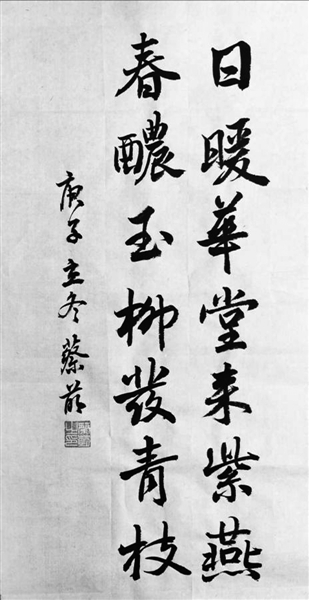 日暖華堂来紫燕
春醲玉柳發青枝
庚子立冬蔡